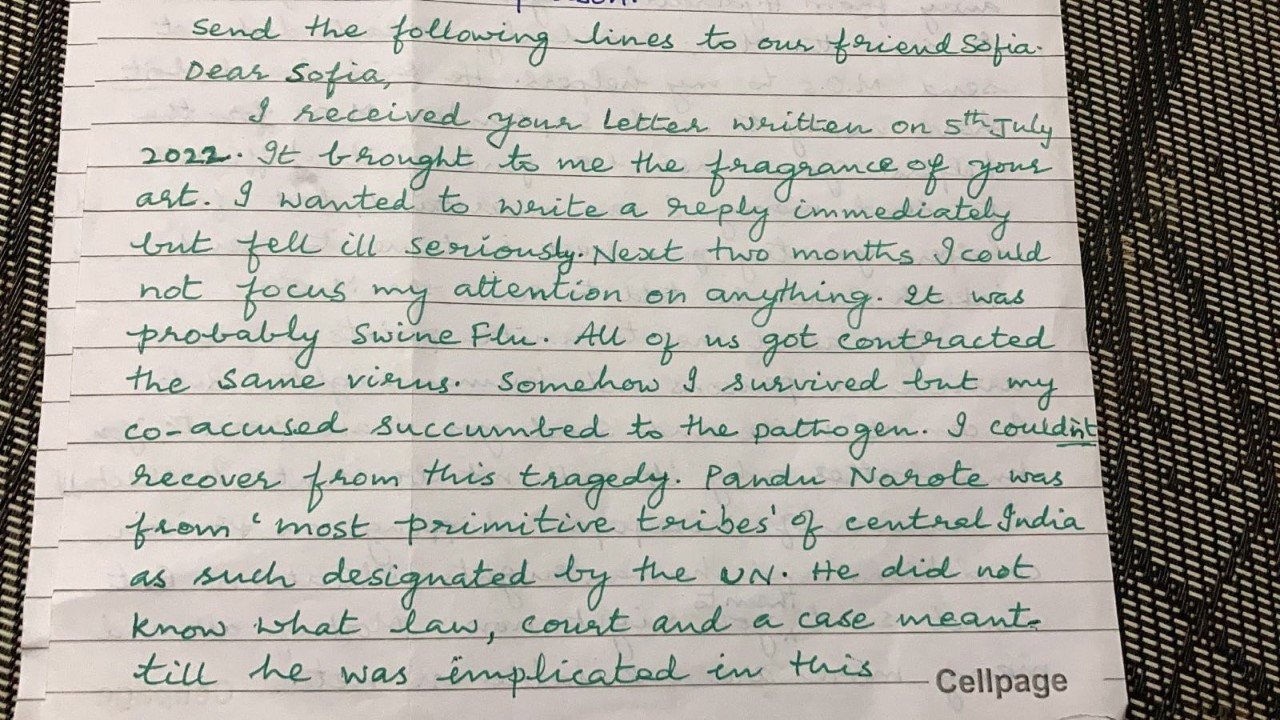 send the following lines to our friend Sofia.
Dear Sofia,
I received your letter written on 5th July
2022. It brought to me the fragrance of your
art. I wanted to write a reply immediately
but fell ill seriously. Next two months I could
not focus my attention on anything. It was
probably Swine Flu. All of us got contracted
the same virus. Somehow I survived but my
co-accused succumbed to the pathogen. I couldn't
recover from this tragedy. Pandu Narote was
from 'most primitive tribes' of central India
as such designated by the UN. He did not
know what law, court and a case meant
till he was implicated in this
Cellpage